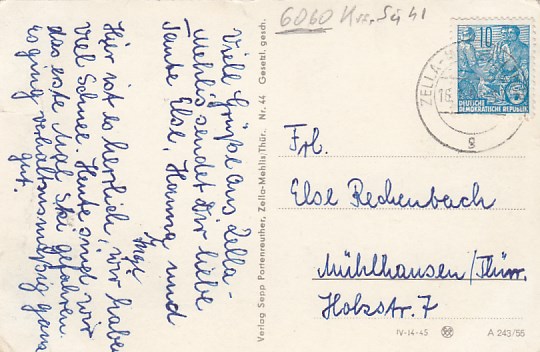 Viele Grüße aus Zella-
Mehlis sendet Dir liebe
Tante Else, Hanna und
Inge
Hier ist es herrlich, wir haben
viel Schnee. Heute sind wir
das erste Mal Ski gefahren.
Es ging verhältnismäßig ganz
gut.
Verlag Sepp Partenreuther, Zella-Mehlis/Thür. Nr. 44 Gesetzl. gesch.
6060
10
DEUTSCHE
DEMOKRATISCHE REPUBLIK
ZELLA-
16
g
Frl.
Else Rechenbach
Mühlhausen/Thür.
Holzstr. 7
IV-14-45
A 243/55